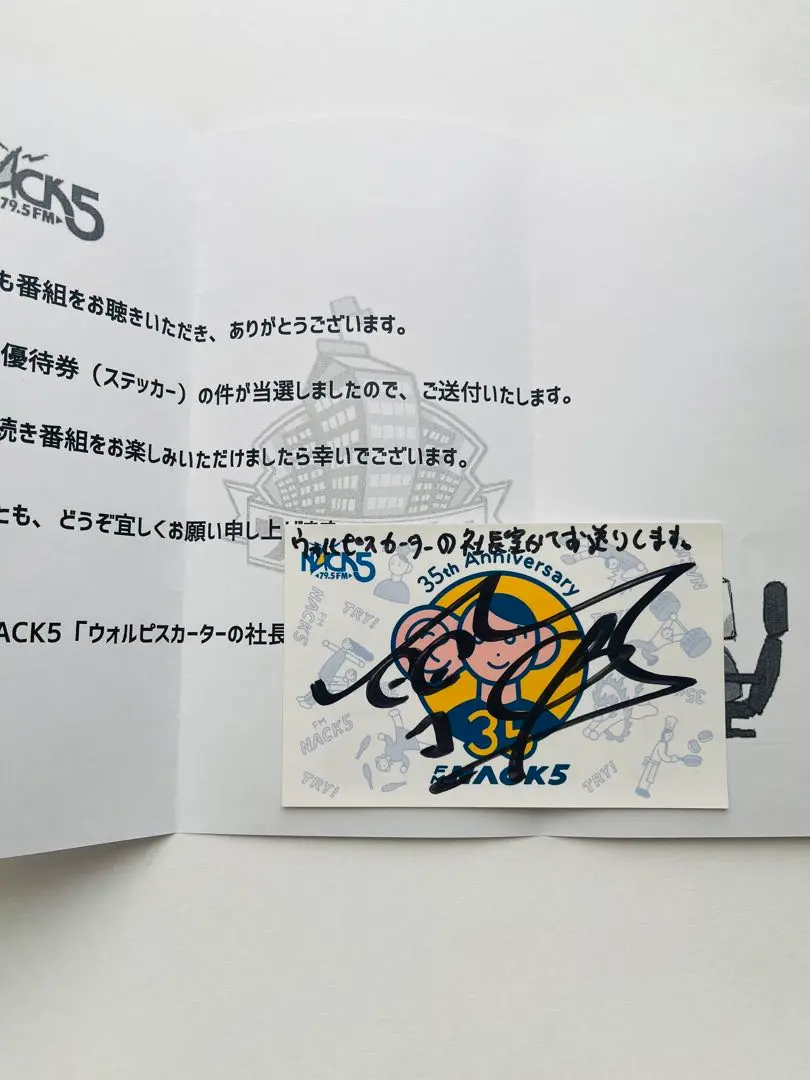 NACK5
79.5FM
も番組をお聴きいただき、ありがとうございます。
優待券（ステッカー）の件が当選しましたので、ご送付いたします。
続き番組をお楽しみいただけましたら幸いでございます。
とも、どうぞ宜しくお願い申し上げます
ACK5「ウォルピスカーターの社長
ウォルピスカーターの社長室からお送りします。
NACK5
79.5FM
35th Anniversary
NACK5
TRY!
FM
NACK5
TRY!
35
FM NACK5
TRY!